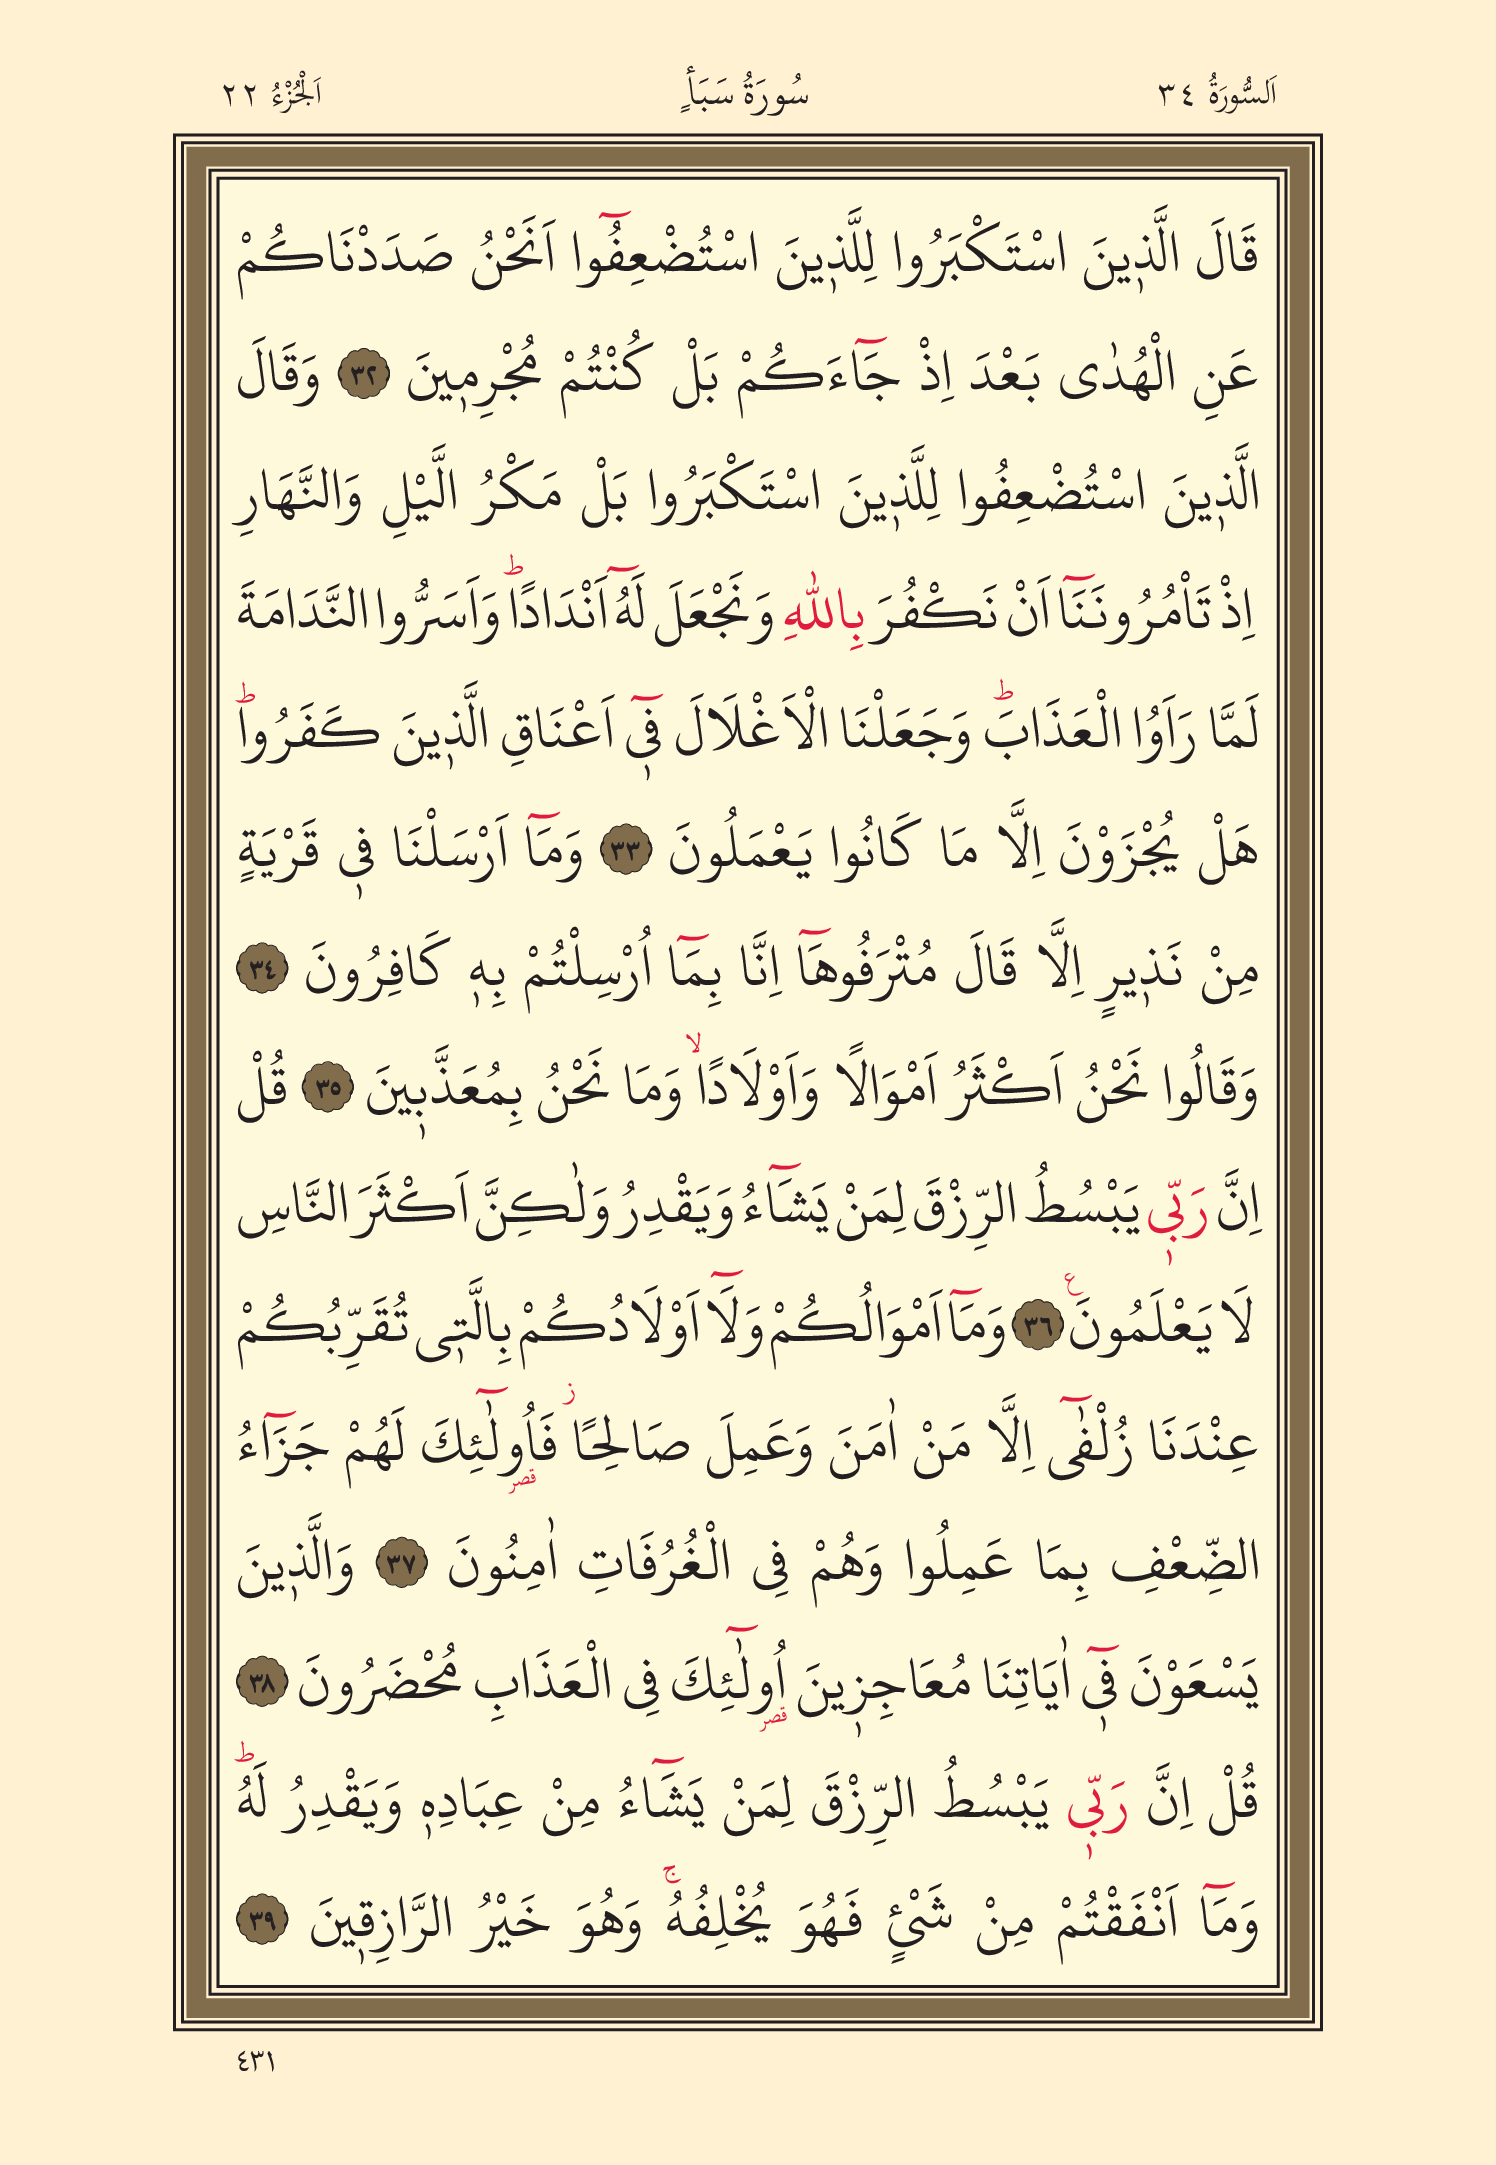 اَلسُّورَةُ ٣٤ سُورَةُ سَبَأٍ اَلْجُزْءُ ٢٢
قَالَ الَّذ۪ينَ اسْتَكْبَرُوا لِلَّذ۪ينَ اسْتُضْعِفُٓوا اَنَحْنُ صَدَدْنَاكُمْ
عَنِ الْهُدٰى بَعْدَ اِذْ جَٓاءَكُمْ بَلْ كُنْتُمْ مُجْرِم۪ينَ ٣٢ وَقَالَ
الَّذ۪ينَ اسْتُضْعِفُوا لِلَّذ۪ينَ اسْتَكْبَرُوا بَلْ مَكْرُ الَّيْلِ وَالنَّهَارِ
اِذْ تَاْمُرُونَنَٓا اَنْ نَكْفُرَ بِاللّٰهِ وَنَجْعَلَ لَهُٓ اَنْدَادًاۜ وَاَسَرُّوا النَّدَامَةَ
لَمَّا رَاَوُا الْعَذَابَۜ وَجَعَلْنَا الْاَغْلَالَ ف۪ٓي اَعْنَاقِ الَّذ۪ينَ كَفَرُواۜ
هَلْ يُجْزَوْنَ اِلَّا مَا كَانُوا يَعْمَلُونَ ٣٣ وَمَٓا اَرْسَلْنَا ف۪ي قَرْيَةٍ
مِنْ نَذ۪يرٍ اِلَّا قَالَ مُتْرَفُوهَٓا اِنَّا بِمَٓا اُرْسِلْتُمْ بِه۪ كَافِرُونَ ٣٤
وَقَالُوا نَحْنُ اَكْثَرُ اَمْوَالًا وَاَوْلَادًاۙ وَمَا نَحْنُ بِمُعَذَّب۪ينَ ٣٥ قُلْ
اِنَّ رَبّ۪ي يَبْسُطُ الرِّزْقَ لِمَنْ يَشَٓاءُ وَيَقْدِرُ وَلٰكِنَّ اَكْثَرَ النَّاسِ
لَا يَعْلَمُونَ۟ ٣٦ وَمَٓا اَمْوَالُكُمْ وَلَٓا اَوْلَادُكُمْ بِالَّت۪ي تُقَرِّبُكُمْ
عِنْدَنَا زُلْفٰٓى اِلَّا مَنْ اٰمَنَ وَعَمِلَ صَالِحًاۘ فَاُو۬لٰٓئِكَ لَهُمْ جَزَٓاءُ
الضِّعْفِ بِمَا عَمِلُوا وَهُمْ فِي الْغُرُفَاتِ اٰمِنُونَ ٣٧ وَالَّذ۪ينَ
يَسْعَوْنَ ف۪ٓي اٰيَاتِنَا مُعَاجِز۪ينَ اُو۬لٰٓئِكَ فِي الْعَذَابِ مُحْضَرُونَ ٣٨
قُلْ اِنَّ رَبّ۪ي يَبْسُطُ الرِّزْقَ لِمَنْ يَشَٓاءُ مِنْ عِبَادِه۪ وَيَقْدِرُ لَهُۜ
وَمَٓا اَنْفَقْتُمْ مِنْ شَيْئٍ فَهُوَ يُخْلِفُهُۚ وَهُوَ خَيْرُ الرَّازِق۪ينَ ٣٩
٤٣١